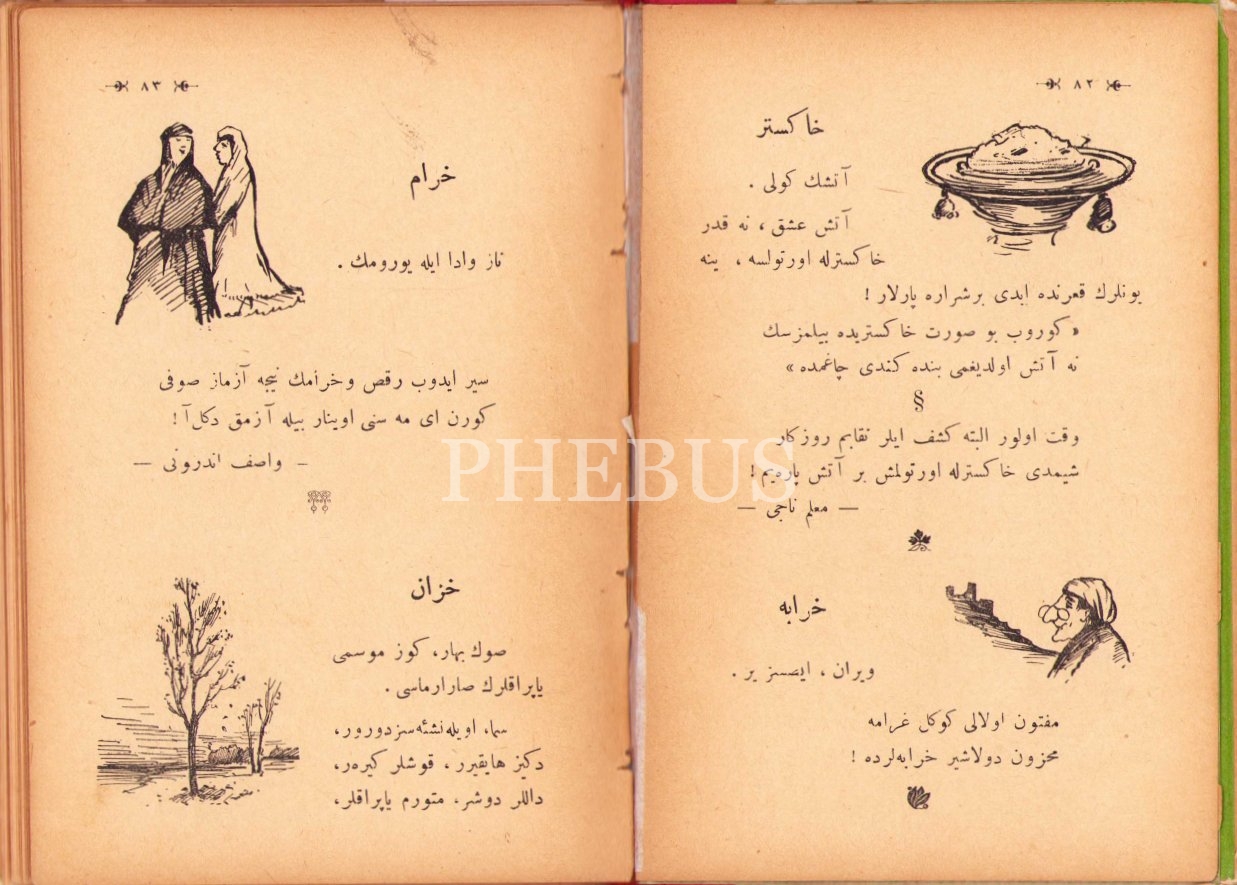 ٨٢
خاكستر
آتشك كولى .
آتش عشق ، نه قدر
خاكسترله اورتولسه ، ينه
بونلرك قعرنده ابدى برشراره پارلار !
« كوروب بو صورت خاكستريده بيلمزسك
نه آتش اولديغمى بنده كندى چاغمده »
§
وقت اولور البته كشف ايلر نقابم روزكار
شيمدى خاكسترله اورتولمش بر آتش پاره‌يم !
— معلم ناجى —
خرابه
ويران ، ايصسز ير .
مفتون اولالى كوكل غرامه
محزون دولاشير خرابه‌لرده !
٨٣
خرام
ناز وادا ايله يورومك .
سير ايدوب رقص وخرامك نيجه آزماز صوفى
كورن اى مه سنى اوينار بيله آزمق دكل آ !
– واصف اندرونى —
خزان
صوك بهار، كوز موسمى
ياپراقلرك صارارماسى .
سما، اويله نشئه‌سز دورور،
دكيز هايقيرر ، قوشلر كيره‌ر،
داللر دوشر، متورم ياپراقلر،
PHEBUS